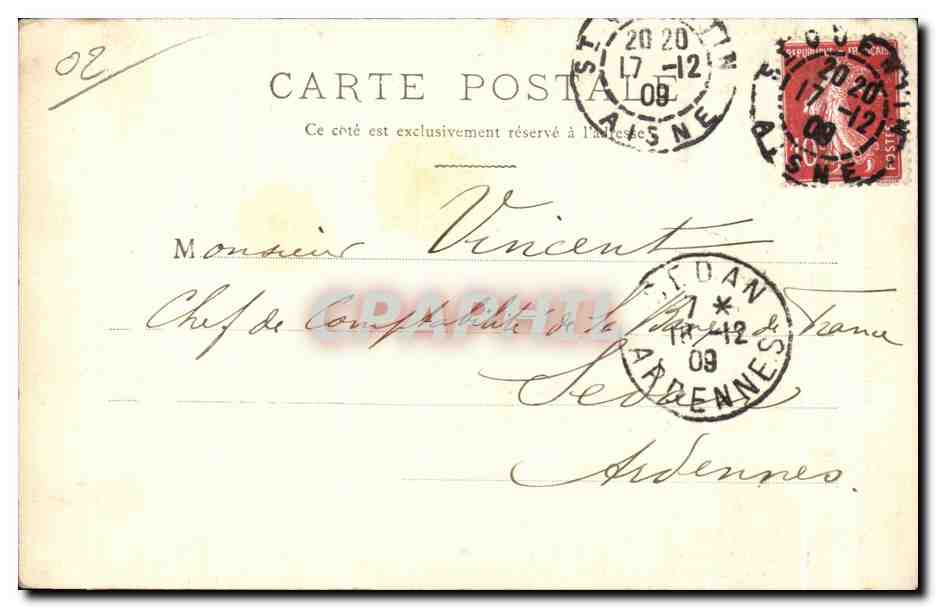 02
CARTE POSTALE
Ce côté est exclusivement réservé à l'adresse
ST QUENTIN
20 20
17 -12
09
AISNE
RÉPUBLIQUE FRANÇAISE
10
POSTES
ST QUENTIN
20 20
17 -12
09
AISNE
Monsieur Vincent
Chef de Comptabilité de la Banque de France
Sedan
Ardennes.
SEDAN
7 *
18 -12
09
ARDENNES
CPAPHIL